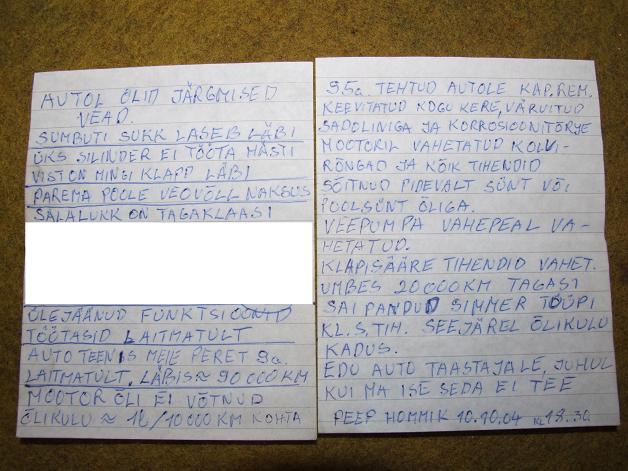 AUTOL OLID JÄRGMISED
VEAD.
SUMBUTI SUKK LASEB LÄBI
ÜKS SILINDER EI TÖÖTA HÄSTI
VIST ON MINGI KLAPP LÄBI
PAREMA POOLE VEOVÕLL NAKSUS
SALALUKK ON TAGAKLAASI
ÜLEJÄÄNUD FUNKTSIOONID
TÖÖTASID LAITMATULT
AUTO TEENIS MEIE PERET 9a.
LAITMATULT. LÄBIS ≈ 90 000 KM
MOOTOR ÕLI EI VÕTNUD
ÕLIKULU ≈ 1L/10 000 KM KOHTA
95a. TEHTUD AUTOLE KAP.REM.
KEEVITATUD KOGU KERE, VÄRVITUD
SADOLINIGA JA KORROSIOONITÕRJE
MOOTORIL VAHETATUD KOLVI-
RÕNGAD JA KÕIK TIHENDID
SÕITNUD PIDEVALT SÜNT VÕI
POOLSÜNT ÕLIGA.
VEEPUMPA VAHEPEAL VA-
HETATUD.
KLAPISÄÄRE TIHENDID VAHET.
UMBES 20000KM TAGASI
SAI PANDUD SIMMER TÜÜPI
KL.S.TIH. SEEJÄREL ÕLIKULU
KADUS.
EDU AUTO TAASTAJALE, JUHUL
KUI MA ISE SEDA EI TEE
PEEP HOMMIK 10.10.04 KL 18.30